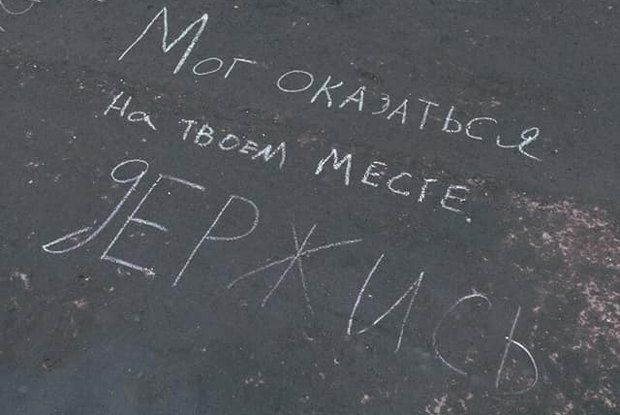 Мог оказаться
на твоем месте.
держись